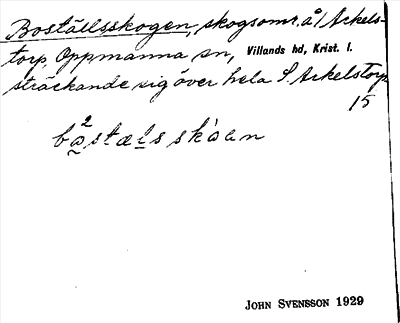 Boställsskogen, skogsomr. å 1 Arkels-
torp, Oppmanna sn, Villands hd, Krist. l.
sträckande sig över hela S. Arkelstorp
15
JOHN SVENSSON 1929